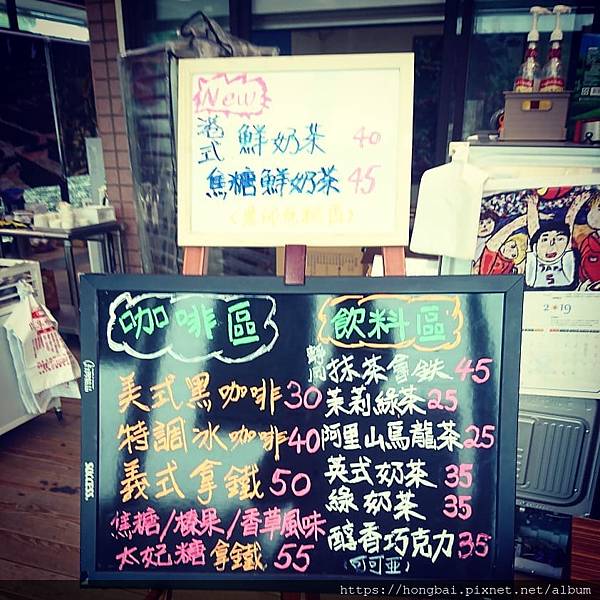 New
港式 鮮奶茶 40
焦糖鮮奶茶 45
咖啡區
美式黑咖啡 30
特調冰咖啡 40
義式拿鐵 50
焦糖/榛果/香草風味
太妃糖拿鐵 55
飲料區
抹茶拿鐵 45
茉莉綠茶 25
阿里山烏龍茶 25
英式奶茶 35
綠奶茶 35
醇香巧克力 35
(可可亞)
SUCCESS
2019
https://hongbai.pixnet.net/album